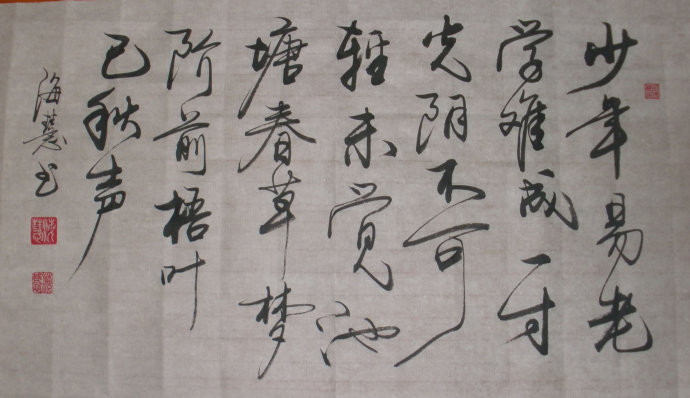 少年易老
学难成一寸
光阴不可
轻未觉池
塘春草梦
阶前梧叶
已秋声
海慧书